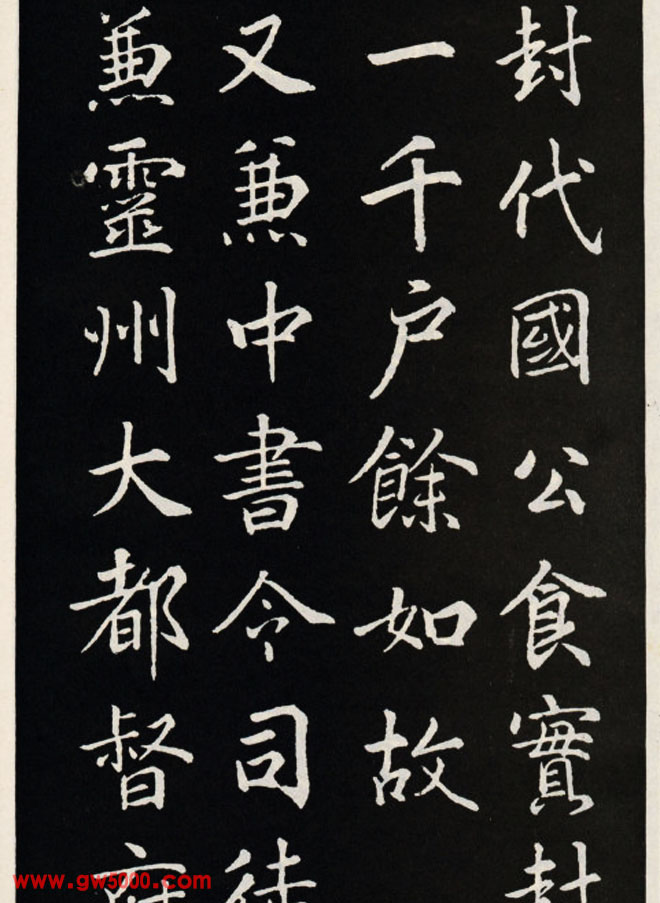 封代國公食實封
一千戶餘如故
又兼中書令司徒
兼靈州大都督府
www.gw5000.com